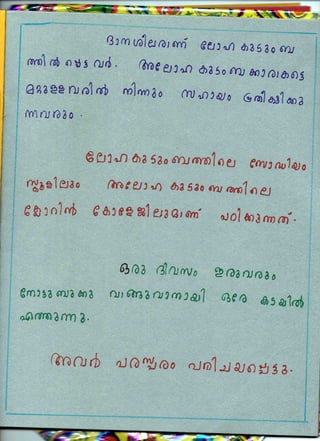 ദാനശീലരാണ് ലോഹ കുടുംബ
ത്തിൽ പ്പെട്ടവർ. അലോഹ കുടംബക്കാരാകട്ടെ
മറ്റുള്ളവരിൽ നിന്നും സഹായം പ്രതീക്ഷിക്കു
ന്നവരും.
ലോഹകുടുംബത്തിലെ സോഡിയം
സ്കൂളിലും അലോഹ കുടുംബത്തിലെ
ക്ലോറിൻ കോളേജിലുമാണ് പഠിക്കുന്നത്.
ഒരു ദിവസം ഇരുവരും
നോട്ടുബുക്കു വാങ്ങുവാനായി ഒരേ കടയിൽ
എത്തുന്നു.
അവർ പരസ്പരം പരിചയപ്പെട്ടു.